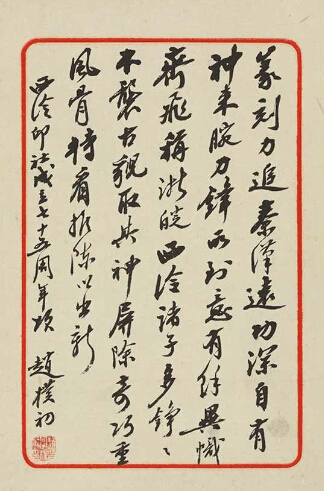 篆刻力追秦漢遠功深自有
神来腕刀鋒所到意有餘異幟
齊飛稱浙皖西泠諸子多錚〻
不襲古貌取其神屏除奇巧重
風骨特看推陳以出新
西泠印社成立七十五周年頌 趙樸初